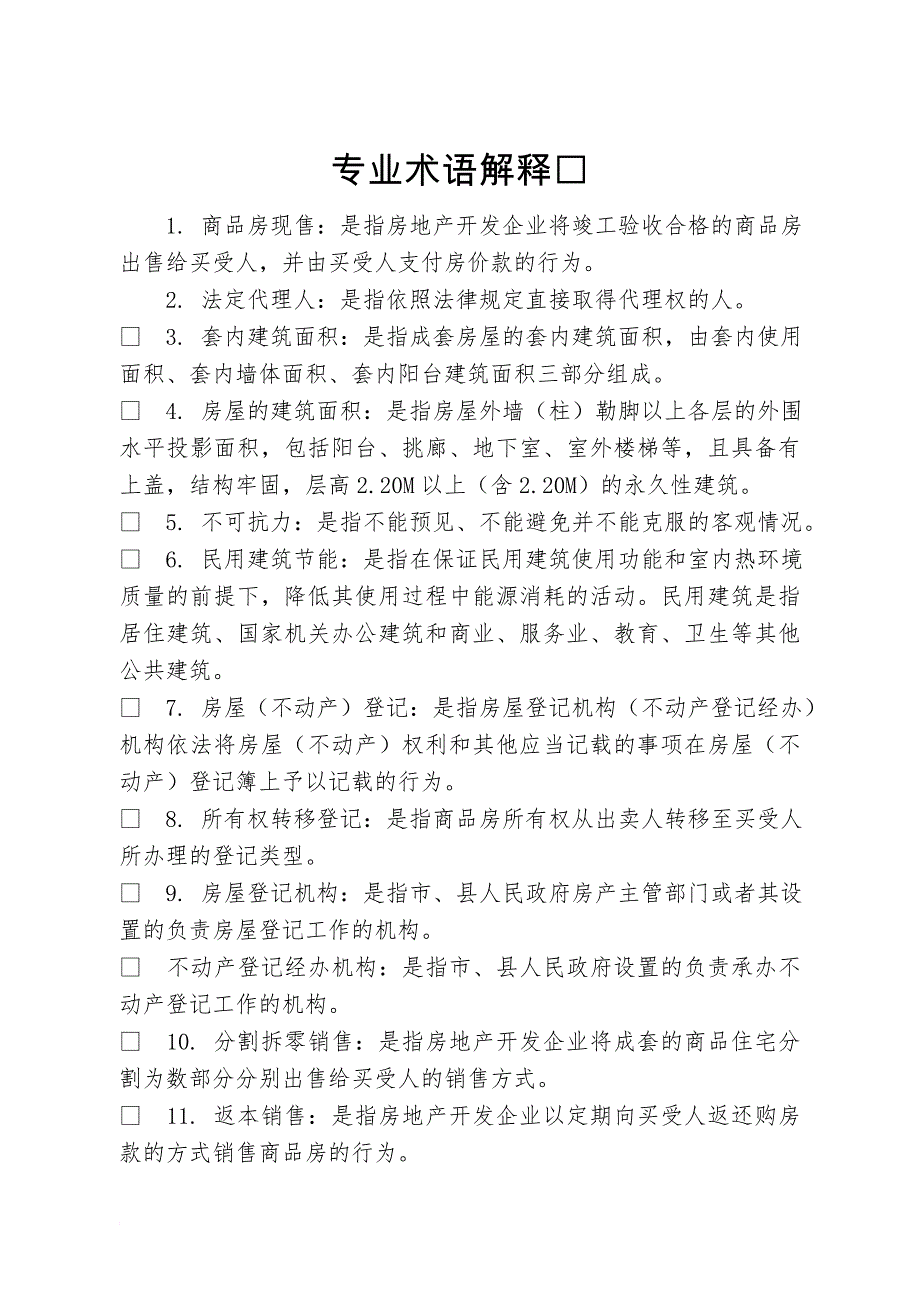 专业术语解释□
1. 商品房现售：是指房地产开发企业将竣工验收合格的商品房
出售给买受人，并由买受人支付房价款的行为。
2. 法定代理人：是指依照法律规定直接取得代理权的人。
□ 3. 套内建筑面积：是指成套房屋的套内建筑面积，由套内使用
面积、套内墙体面积、套内阳台建筑面积三部分组成。
□ 4. 房屋的建筑面积：是指房屋外墙（柱）勒脚以上各层的外围
水平投影面积，包括阳台、挑廊、地下室、室外楼梯等，且具备有
上盖，结构牢固，层高2.20M以上（含2.20M）的永久性建筑。
□ 5. 不可抗力：是指不能预见、不能避免并不能克服的客观情况。
□ 6. 民用建筑节能：是指在保证民用建筑使用功能和室内热环境
质量的前提下，降低其使用过程中能源消耗的活动。民用建筑是指
居住建筑、国家机关办公建筑和商业、服务业、教育、卫生等其他
公共建筑。
□ 7. 房屋（不动产）登记：是指房屋登记机构（不动产登记经办）
机构依法将房屋（不动产）权利和其他应当记载的事项在房屋（不
动产）登记簿上予以记载的行为。
□ 8. 所有权转移登记：是指商品房所有权从出卖人转移至买受人
所办理的登记类型。
□ 9. 房屋登记机构：是指市、县人民政府房产主管部门或者其设
置的负责房屋登记工作的机构。
□ 不动产登记经办机构：是指市、县人民政府设置的负责承办不
动产登记工作的机构。
□ 10. 分割拆零销售：是指房地产开发企业将成套的商品住宅分
割为数部分分别出售给买受人的销售方式。
□ 11. 返本销售：是指房地产开发企业以定期向买受人返还购房
款的方式销售商品房的行为。